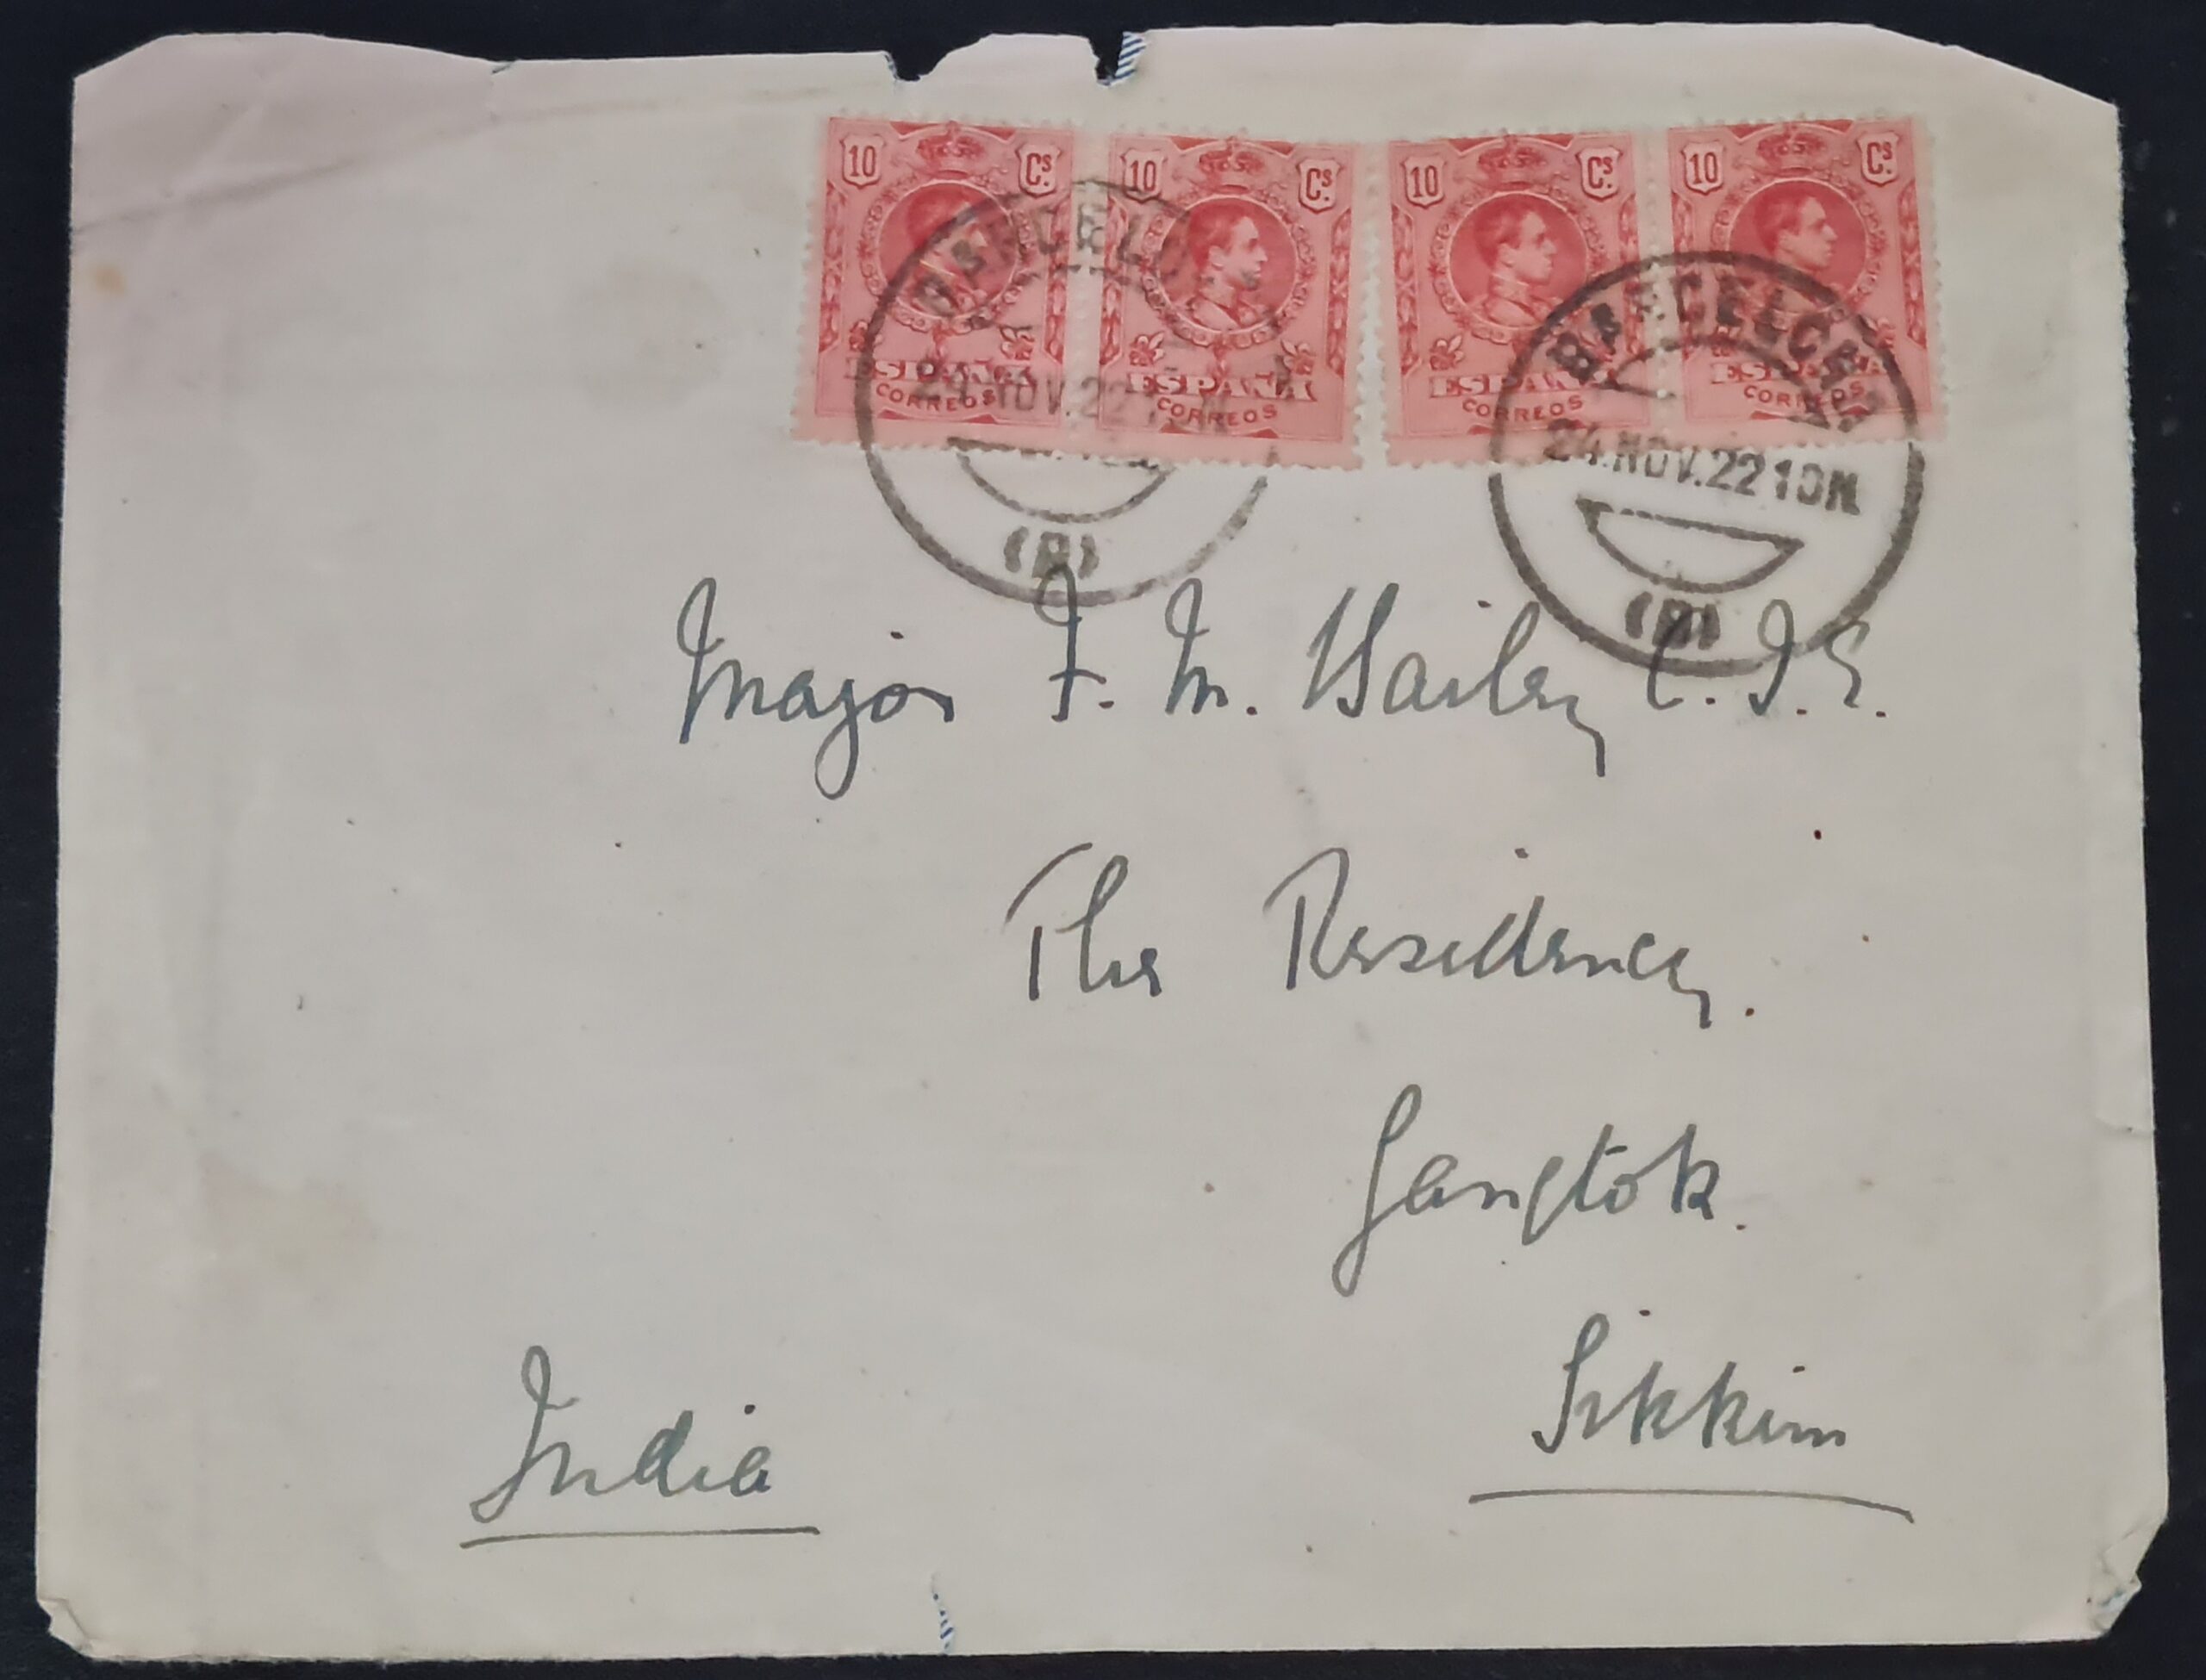 10 Cs. 10 Cs. 10 Cs. 10 Cs.
ESPAÑA ESPAÑA ESPAÑA ESPAÑA
CORREOS CORREOS CORREOS CORREOS
BARCELONA
24.NOV.22
BARCELONA
24.NOV.22 10N
Major F. M. Bailey C.I.E.
The Residency.
Gangtok.
Sikkim
India